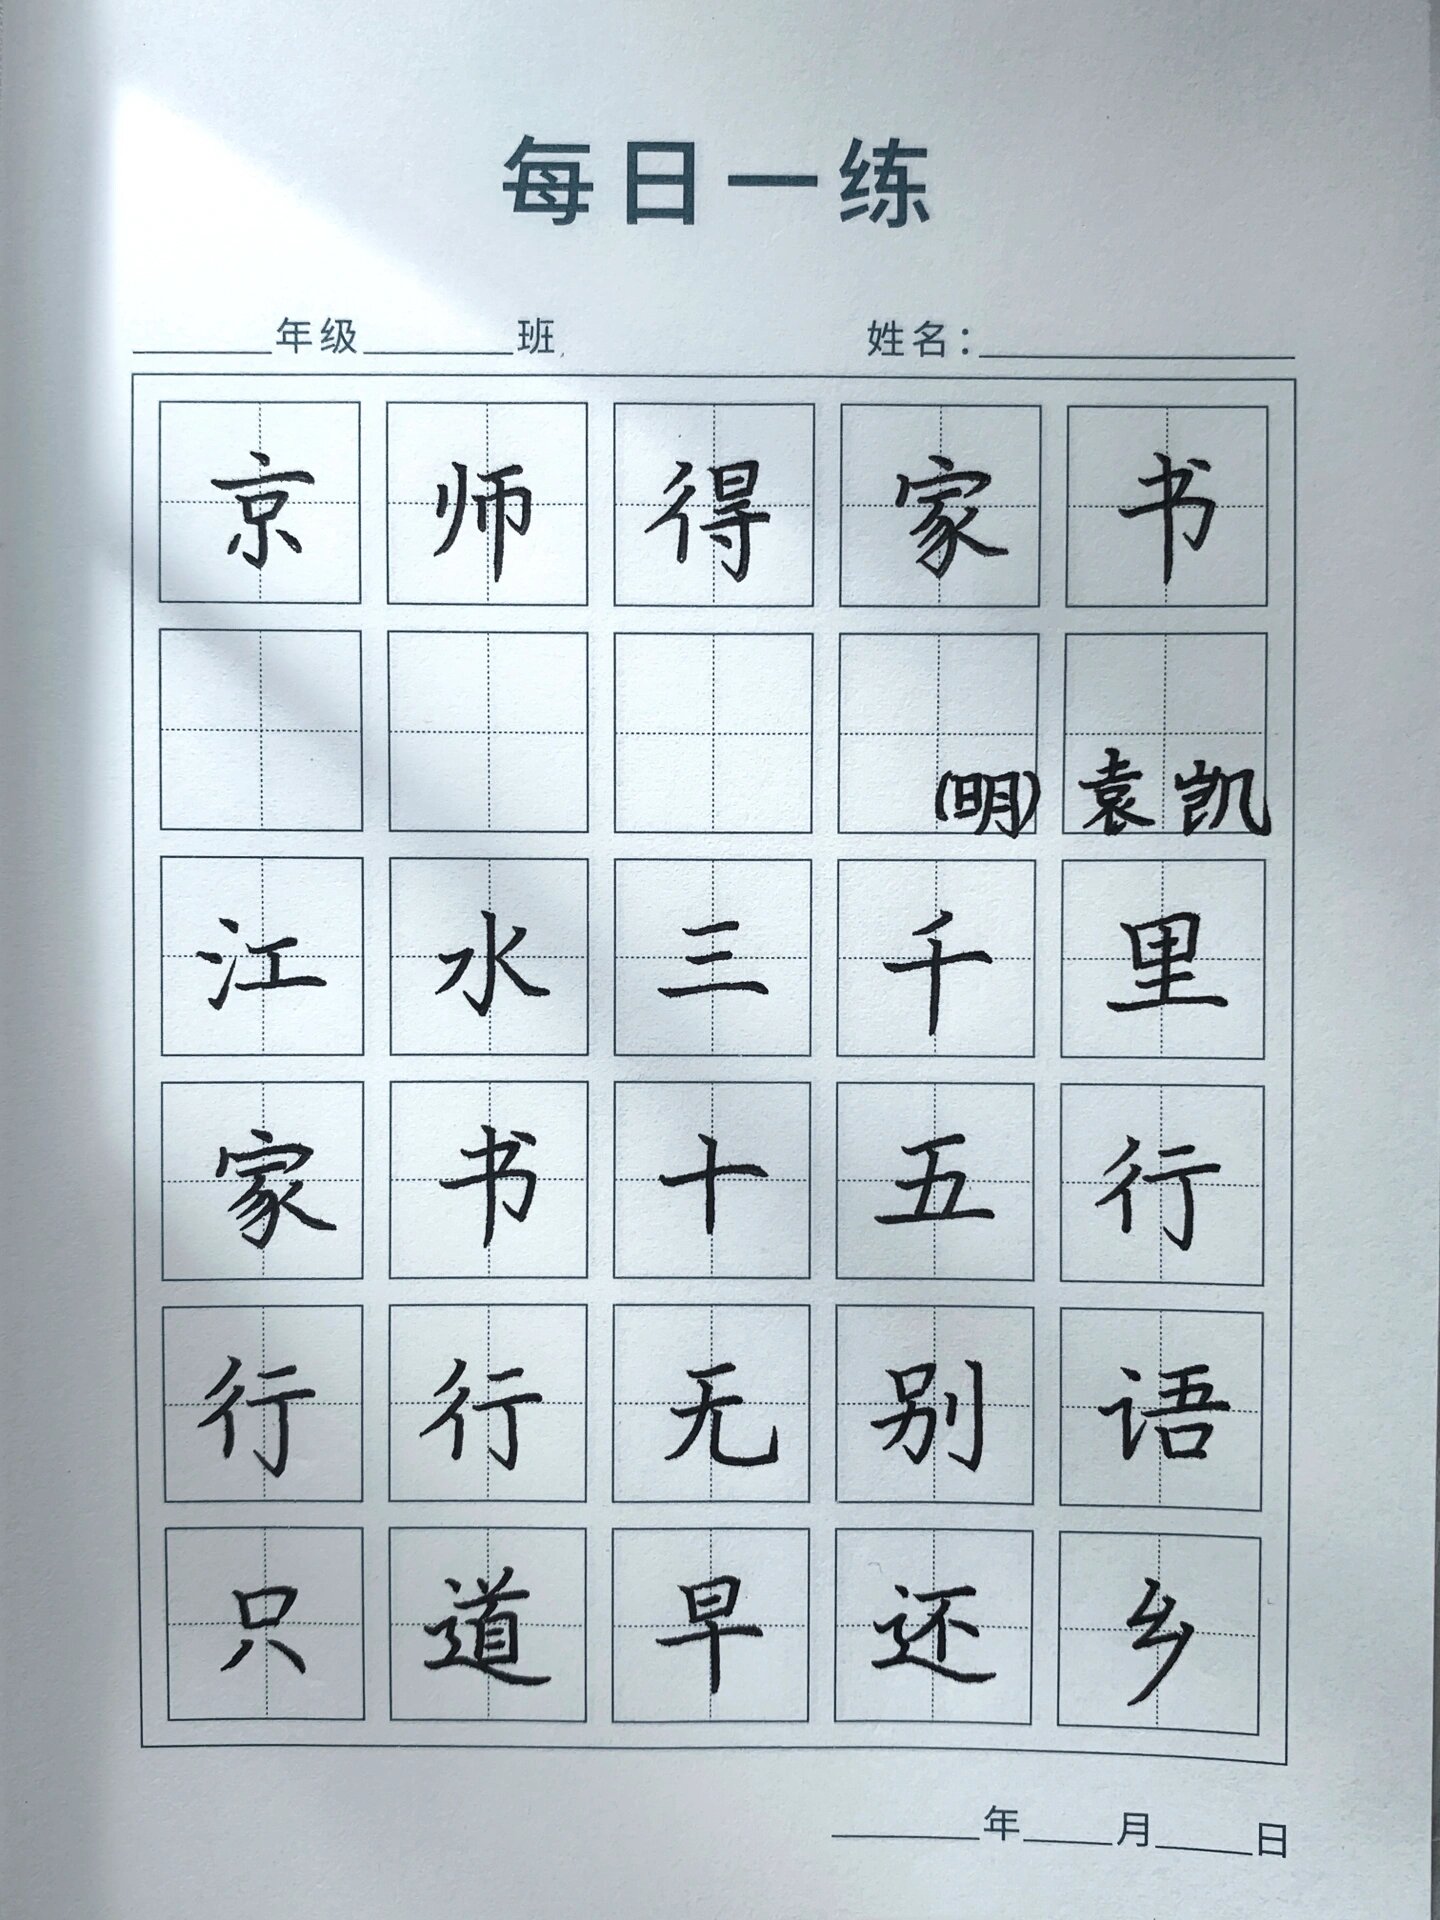 每日一练
____年级____班 姓名：________
京师得家书
(明) 袁凯
江水三千里
家书十五行
行行无别语
只道早还乡
____年___月___日